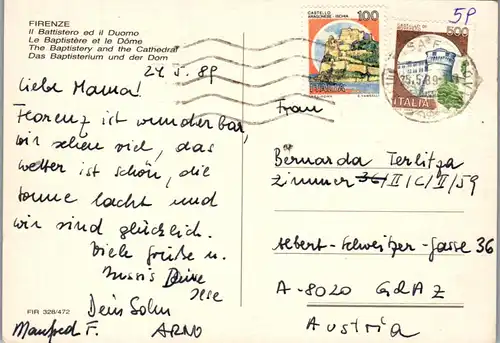 FIRENZE
Il Battistero ed il Duomo
Le Baptistère et le Dôme
The Baptistery and the Cathedral
Das Baptisterium und der Dom
24.5.89
Liebe Mama!
Florenz ist wunderbar,
wir sehen viel, das
Wetter ist schön, die
Sonne lacht und
wir sind glücklich.
Viele Grüße u.
Bussis Deine
Dein Sohn
Manfred F. ARNO
FIR 328/472
CASTELLO
ARAGONESE - ISCHIA
100
ITALIA
500
ITALIA
5P
Frau
Bernarda Terlitza
Zimmer II/C/II/59
Albert-Schweitzer-Gasse 36
A-8020 GRAZ
Austria